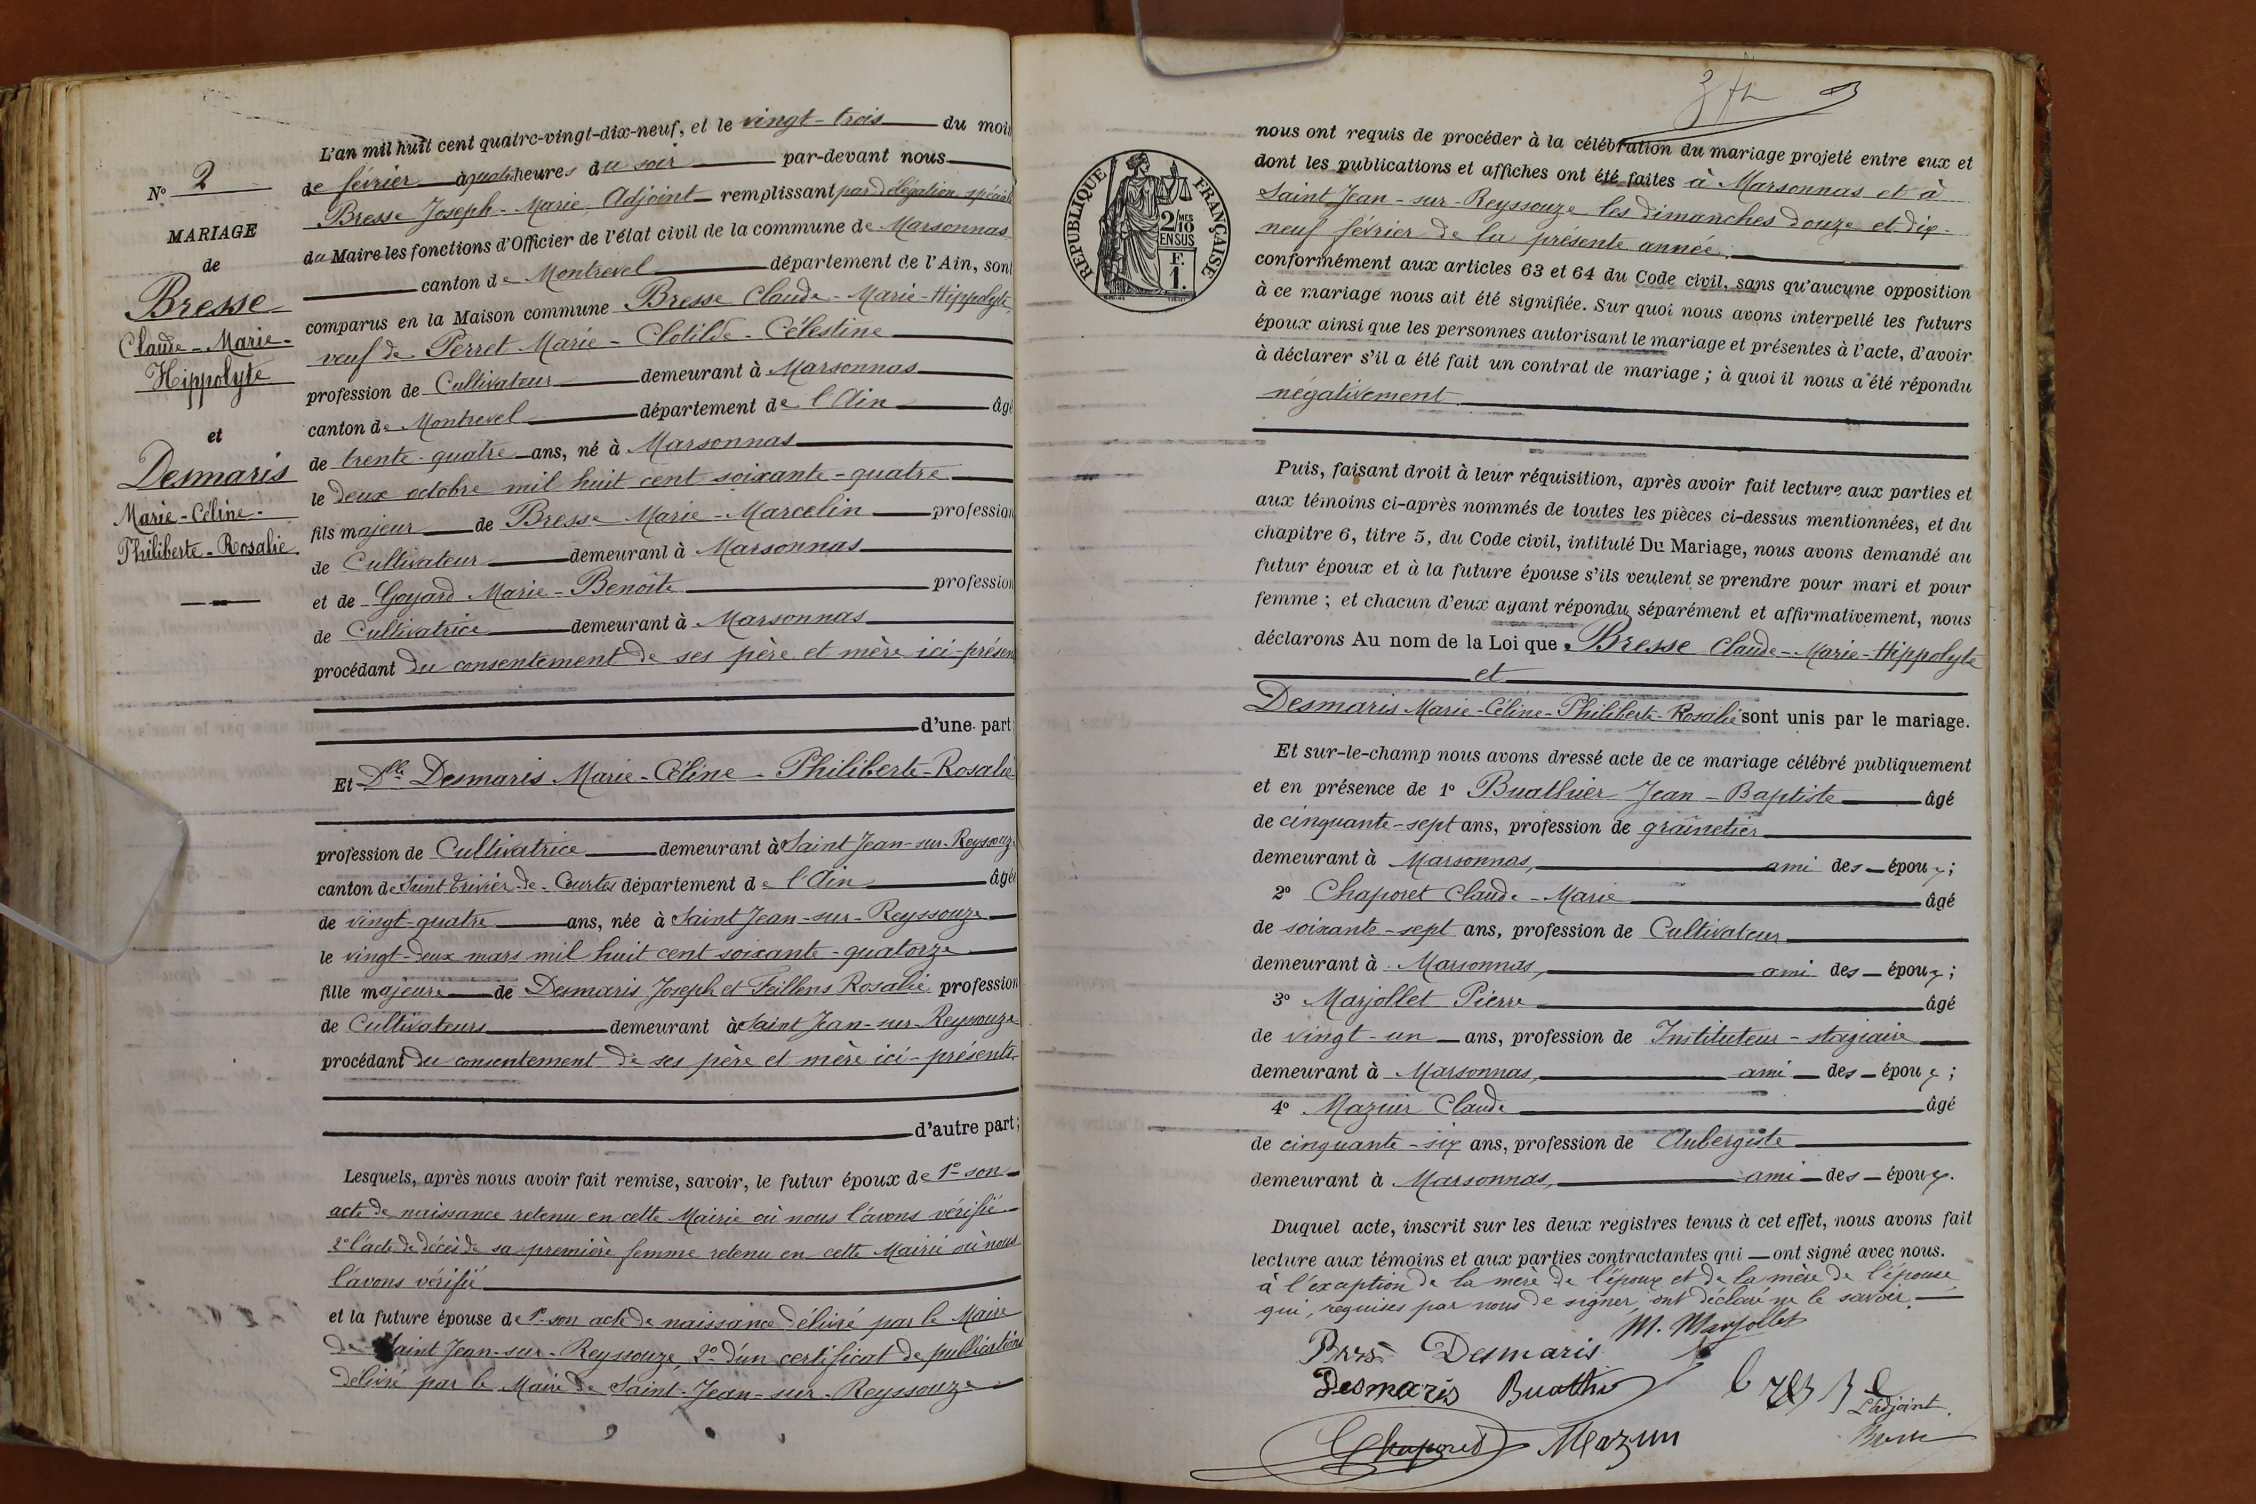 N° 2
MARIAGE
de
Bresse
Claude-Marie-
Hippolyte
et
Desmaris
Marie-Céline-
Philiberte-Rosalie
L'an mil huit cent quatre-vingt-dix-neuf, et le vingt-trois du mois
de février à quatre heures du soir par-devant nous
Bresse Joseph-Marie, Adjoint remplissant par délégation spéciale
du Maire les fonctions d'Officier de l'état civil de la commune de Marsonnas
canton de Montrevel département de l'Ain, sont
comparus en la Maison commune Bresse Claude-Marie-Hippolyte,
veuf de Perret Marie-Clotilde-Célestine
profession de Cultivateur demeurant à Marsonnas
canton de Montrevel département de l'Ain âgé
de trente-quatre ans, né à Marsonnas
le deux octobre mil huit cent soixante-quatre
fils majeur de Bresse Marie-Marcelin profession
de Cultivateur demeurant à Marsonnas
et de Goyard Marie-Benoîte profession
de Cultivatrice demeurant à Marsonnas
procédant du consentement de ses père et mère ici-présents
d'une part;
Et Dlle Desmaris Marie-Céline-Philiberte-Rosalie
profession de Cultivatrice demeurant à Saint Jean-sur-Reyssouze
canton de Saint Trivier-de-Courtes département de l'Ain âgée
de vingt-quatre ans, née à Saint Jean-sur-Reyssouze
le vingt-deux mars mil huit cent soixante-quatorze
fille majeure de Desmaris Joseph et Feillens Rosalie profession
de Cultivateurs demeurant à Saint Jean-sur-Reyssouze
procédant du consentement de ses père et mère ici-présents
d'autre part;
Lesquels, après nous avoir fait remise, savoir, le futur époux de 1° son
acte de naissance retenu en cette Mairie où nous l'avons vérifié
2° l'acte de décès de sa première femme retenu en cette Mairie où nous
l'avons vérifié
et la future épouse de 1° son acte de naissance délivré par le Maire
de Saint Jean-sur-Reyssouze, 2° d'un certificat de publications
délivré par le Maire de Saint-Jean-sur-Reyssouze
RÉPUBLIQUE FRANÇAISE
2/10
EN SUS
F.
1.
nous ont requis de procéder à la célébration du mariage projeté entre eux et
dont les publications et affiches ont été faites à Marsonnas et à
Saint Jean-sur-Reyssouze les dimanches douze et dix-
neuf février de la présente année,
conformément aux articles 63 et 64 du Code civil, sans qu'aucune opposition
à ce mariage nous ait été signifiée. Sur quoi nous avons interpellé les futurs
époux ainsi que les personnes autorisant le mariage et présentes à l'acte, d'avoir
à déclarer s'il a été fait un contrat de mariage; à quoi il nous a été répondu
négativement
Puis, faisant droit à leur réquisition, après avoir fait lecture aux parties et
aux témoins ci-après nommés de toutes les pièces ci-dessus mentionnées, et du
chapitre 6, titre 5, du Code civil, intitulé Du Mariage, nous avons demandé au
futur époux et à la future épouse s'ils veulent se prendre pour mari et pour
femme; et chacun d'eux ayant répondu séparément et affirmativement, nous
déclarons Au nom de la Loi que Bresse Claude-Marie-Hippolyte
et
Desmaris Marie-Céline-Philiberte-Rosalie sont unis par le mariage.
Et sur-le-champ nous avons dressé acte de ce mariage célébré publiquement
et en présence de 1° Buathier Jean-Baptiste âgé
de cinquante-sept ans, profession de grainetier
demeurant à Marsonnas, ami des époux;
2° Chaporet Claude-Marie âgé
de soixante-sept ans, profession de Cultivateur
demeurant à Marsonnas, ami des époux;
3° Marjollet Pierre âgé
de vingt-un ans, profession de Instituteur-stagiaire
demeurant à Marsonnas, ami des époux;
4° Mazuir Claude âgé
de cinquante-six ans, profession de Aubergiste
demeurant à Marsonnas, ami des époux.
Duquel acte, inscrit sur les deux registres tenus à cet effet, nous avons fait
lecture aux témoins et aux parties contractantes qui ont signé avec nous.
à l'exception de la mère de l'époux et de la mère de l'épouse
qui, requises par nous de signer, ont déclaré ne le savoir.
M. Marjollet
Desmaris
Desmaris Buathier
L'adjoint.
Chaporet Mazuir Bresse